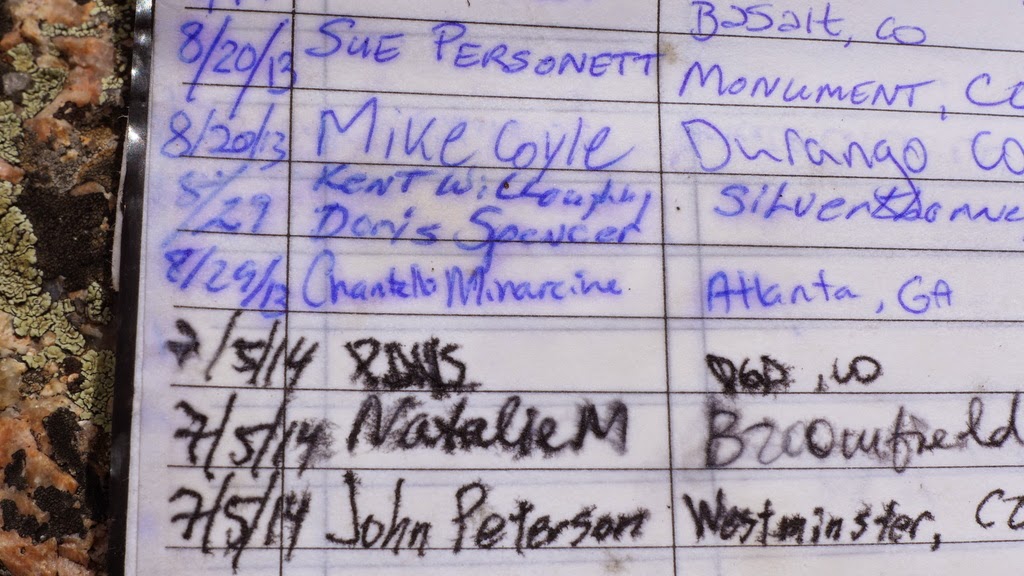 Basalt, CO
8/20/13 SUE PERSONETT MONUMENT, CO
8/20/13 Mike Coyle Durango CO
8/29 KENT Willoughby Silverthorne
Doris Spencer
8/29/13 Chantelle Minarcine Atlanta, GA
7/5/14 , CO
7/5/14 Natalie M Broomfield
7/5/14 John Peterson Westminster, CO